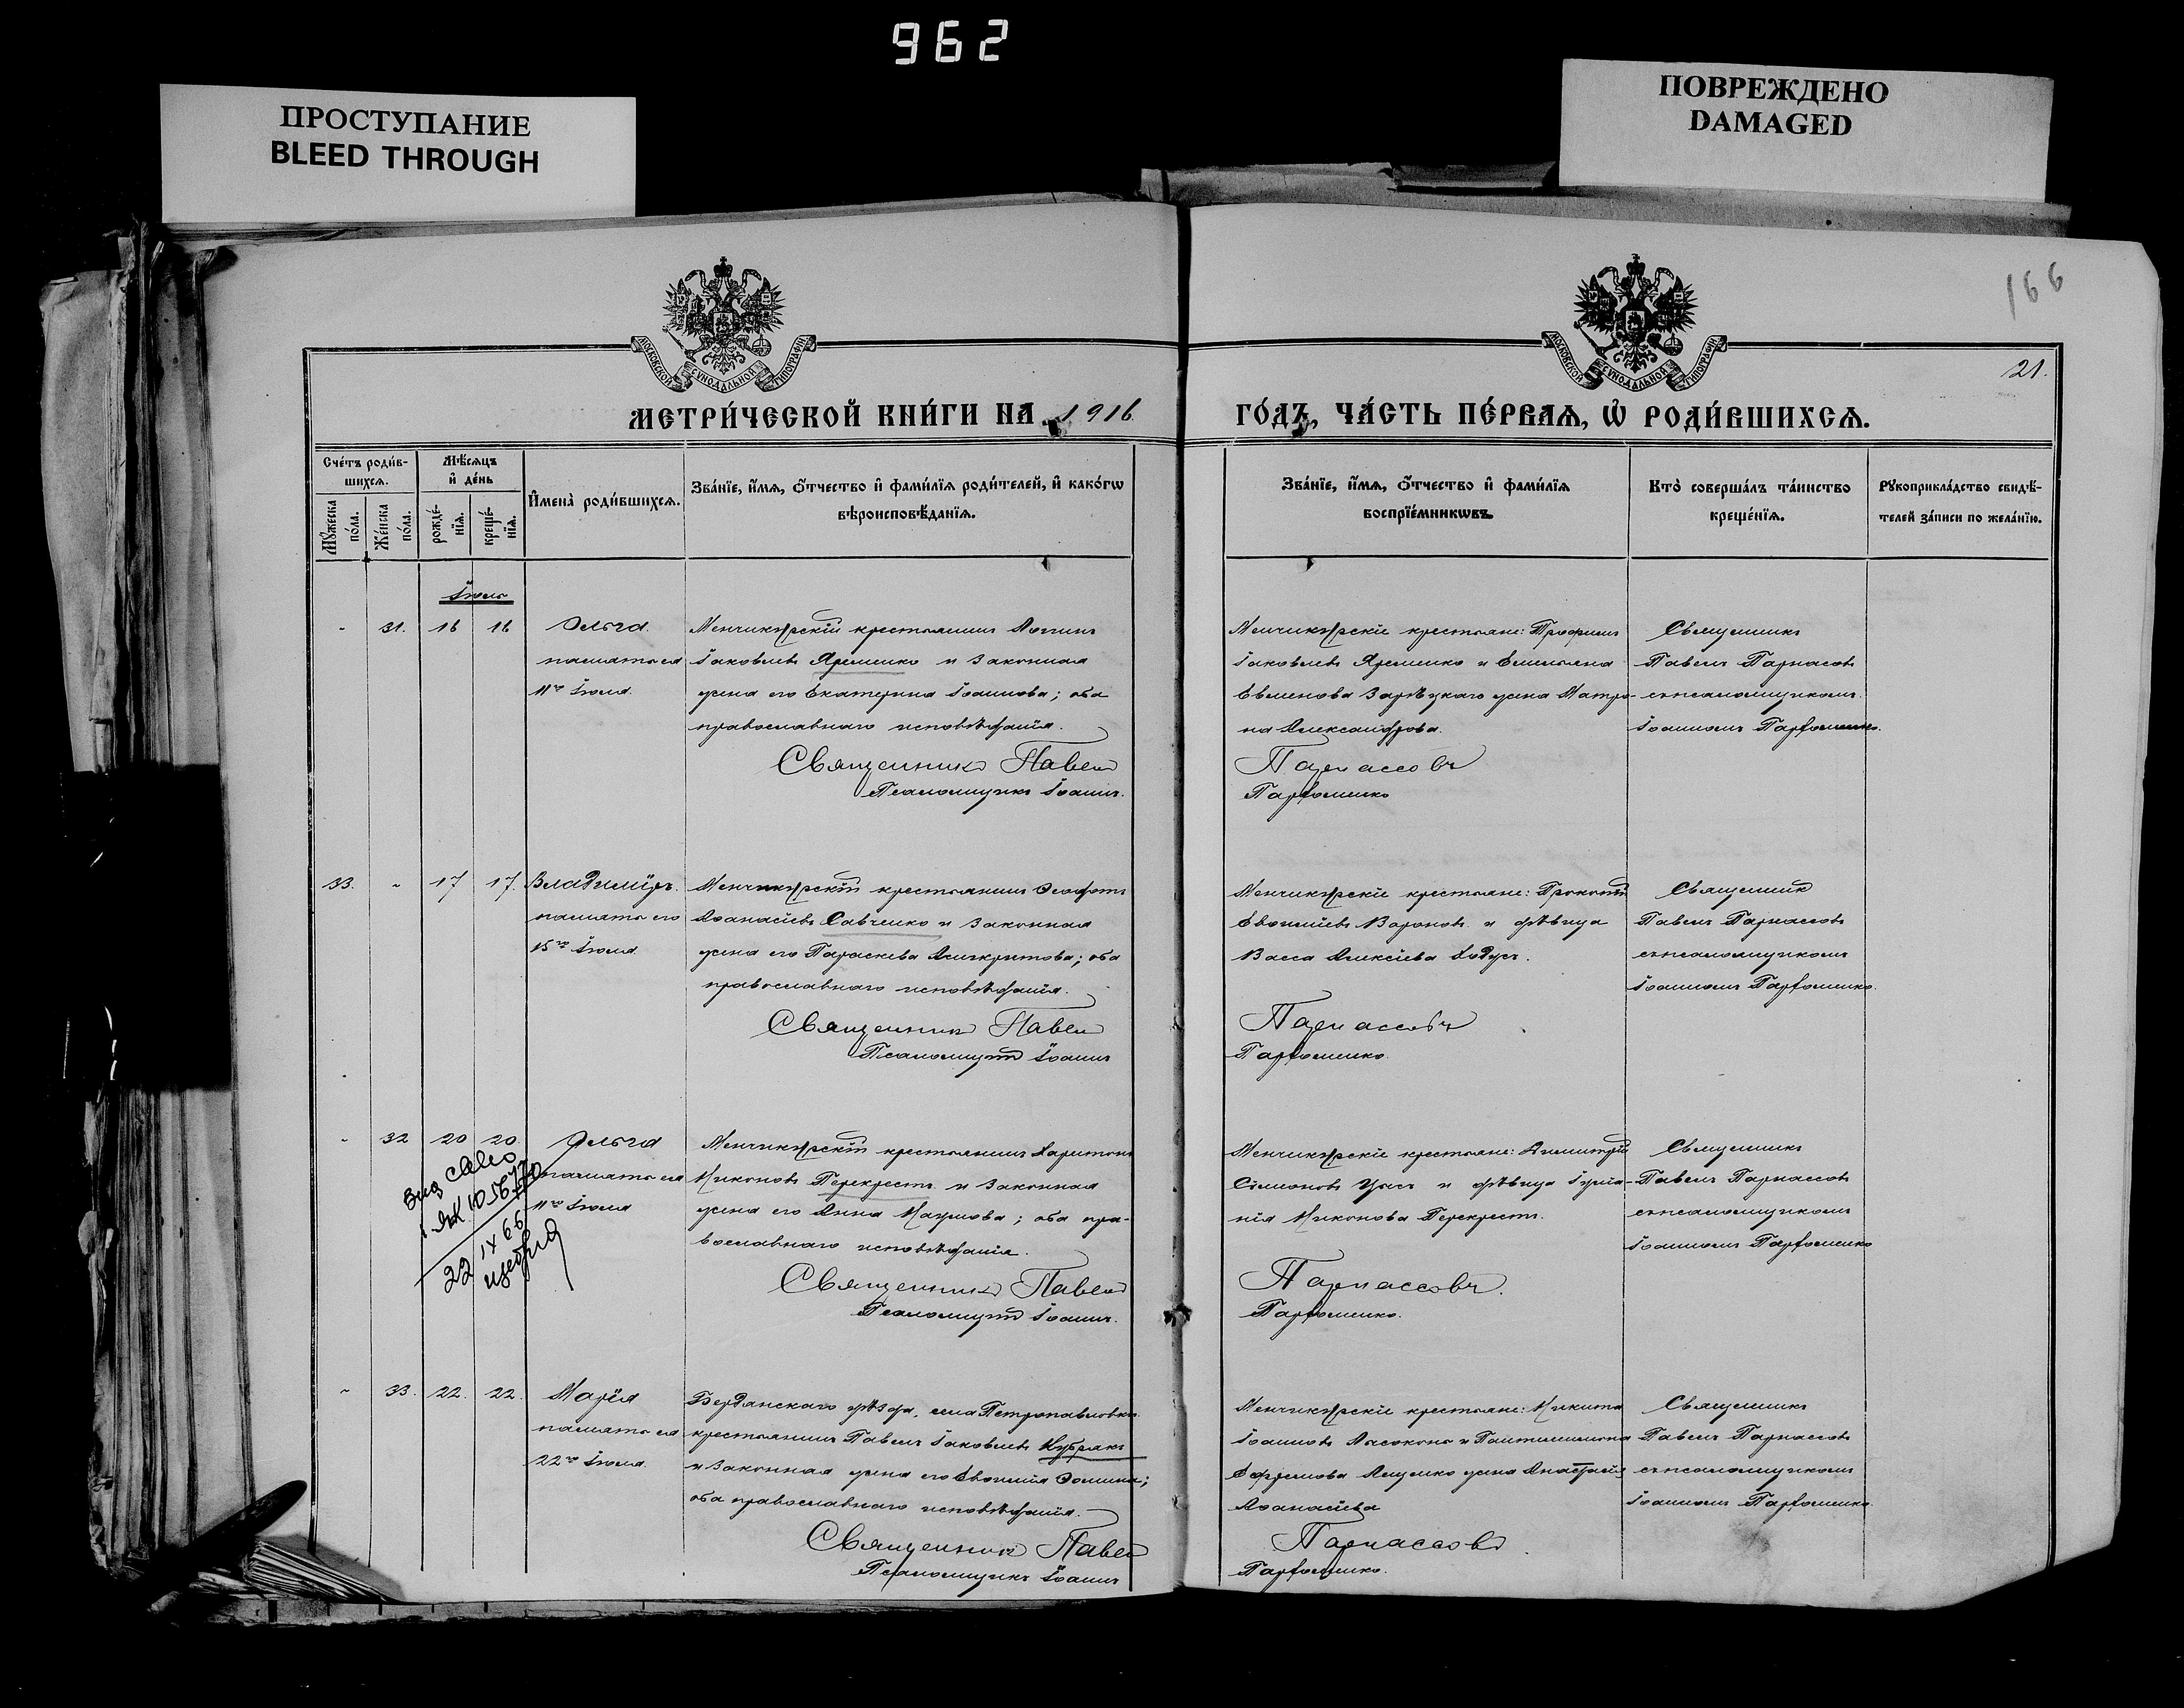 962
ПРОСТУПАНИЕ
BLEED THROUGH
ПОВРЕЖДЕНО
DAMAGED
166
МОСКОВСКОЙ СѴНОДАЛЬНОЙ ТИПОГРАФІИ
МОСКОВСКОЙ СѴНОДАЛЬНОЙ ТИПОГРАФІИ
21.
МЕТРИ́ЧЕСКОЙ КНИ́ГИ НА 1916
ГО́ДЪ, ЧА́СТЬ ПЕ́РВАѦ, Ѡ҆ РОДИ́ВШИХСѦ.
Сче́тъ роди́в-
шихсѧ.
Мꙋ́жеска по́ла.
Же́нска по́ла.
Мѣ́сѧцъ
и҆ де́нь
рожде́-
нїѧ.
креще́-
нїѧ.
И҆мена̀ роди́вшихсѧ.
Зва́нїе, и҆́мѧ, ѻ҆́тчество и҆ фами́лїѧ роди́телей, и҆ како́гѡ
вѣроисповѣ́данїѧ.
Зва́нїе, и҆́мѧ, ѻ҆́тчество и҆ фами́лїѧ
воспрїе́мникѡвъ.
Кто̀ соверша́лъ та́инство
креще́нїѧ.
Рꙋкоприкла́дство свидѣ́-
телей за́писи по жела́нїю.
Іюль
- 31. 16 16 Ольга
память ея
11го Іюля.
Менчикурскій крестьянинъ Логинъ
Іаковлевъ Яременко и законная
жена его Екатерина Іоаннова; оба
православнаго исповѣданія.
Священникъ Павелъ
Псаломщикъ Іоаннъ
Менчикурскіе крестьяне: Трофимъ
Іаковлевъ Яременко и Емельяна
Евменова Зарѣцкаго жена Матро-
на Александрова.
Парнассовъ
Парфоменко
Священникъ
Павелъ Парнасовъ
съ псаломщикомъ
Іоанномъ Парфоменко.
33. - 17 17. Владиміръ.
память его
15го Іюля.
Менчикурскій крестьянинъ Ѳеофанъ
Аѳанасіевъ Савченко и законная
жена его Параскева Асигкритова; оба
православнаго исповѣданія.
Священникъ Павелъ
Псаломщикъ Іоаннъ
Менчикурскіе крестьяне: Прокопій
Евѳиміевъ Вороновъ и дѣвица
Васса Алексіева
Парнассовъ
Парфоменко.
Священникъ
Павелъ Парнассовъ
съ псаломщикомъ
Іоанномъ Парфоменко.
- 32 20 20. Ольга
память ея
11го Іюля
22 IX 66
Менчикурскій крестьянинъ Харитонъ
Никоновъ Перекрестъ и законная
жена его Анна Наумова; оба пра-
вославнаго исповѣданія.
Священникъ Павелъ
Псаломщикъ Іоаннъ.
Менчикурскіе крестьяне: Димитрій
Симоновъ и дѣвица Іулiа-
нія Никонова Перекрестъ.
Парнассовъ.
Парфоменко.
Священникъ
Павелъ Парнассовъ
съ псаломщикомъ
Іоанномъ Парфоменко
- 33. 22. 22. Марія
память ея
22го Іюля.
Бердянскаго уѣзда, села Петропавловки
крестьянинъ Павелъ Іаковлевъ Кубракъ
и законная жена его Евѳимія Ѳомина;
оба православнаго исповѣданія.
Священникъ Павелъ
Псаломщикъ Іоаннъ
Менчикурскіе крестьяне: Никита
Іоанновъ и Пантелеимона
Ефремова жена Анастасія
Аѳанасіева
Парнассовъ
Парфоменко.
Священникъ
Павелъ Парнассовъ
съ псаломщикомъ
Іоанномъ Парфоменко.